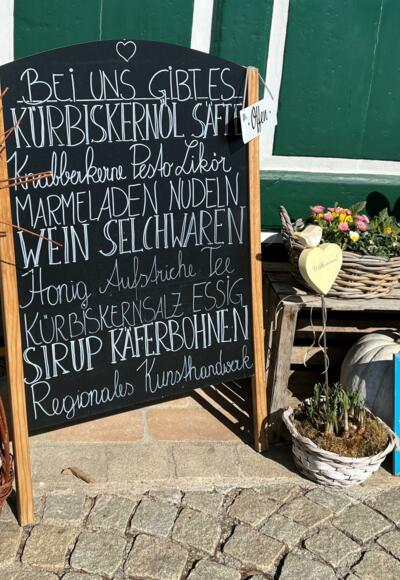 BEI UNS GIBT ES!
KÜRBISKERNÖL SÄFTE
Offen
Knabberkerne Pesto Likör
MARMELADEN NUDELN
WEIN SELCHWAREN
Honig Aufstriche Tee
KÜRBISKERNSALZ ESSIG
SIRUP KÄFERBOHNEN
Regionales Kunsthandwerk
Willkommen